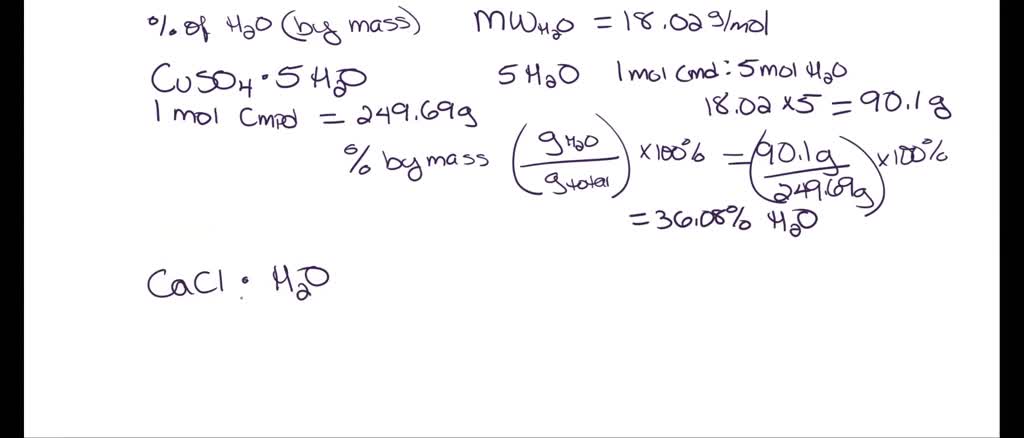 % of H₂O (by mass) MW H₂O = 18.02 g/mol
CuSO₄ · 5 H₂O 5 H₂O 1 mol Cmd : 5 mol H₂O
1 mol Cmpd = 249.69g 18.02 × 5 = 90.1 g
% by mass (g H₂O / g total) × 100% = (90.1g / 249.69g) × 100%
= 36.08% H₂O
CaCl · H₂O